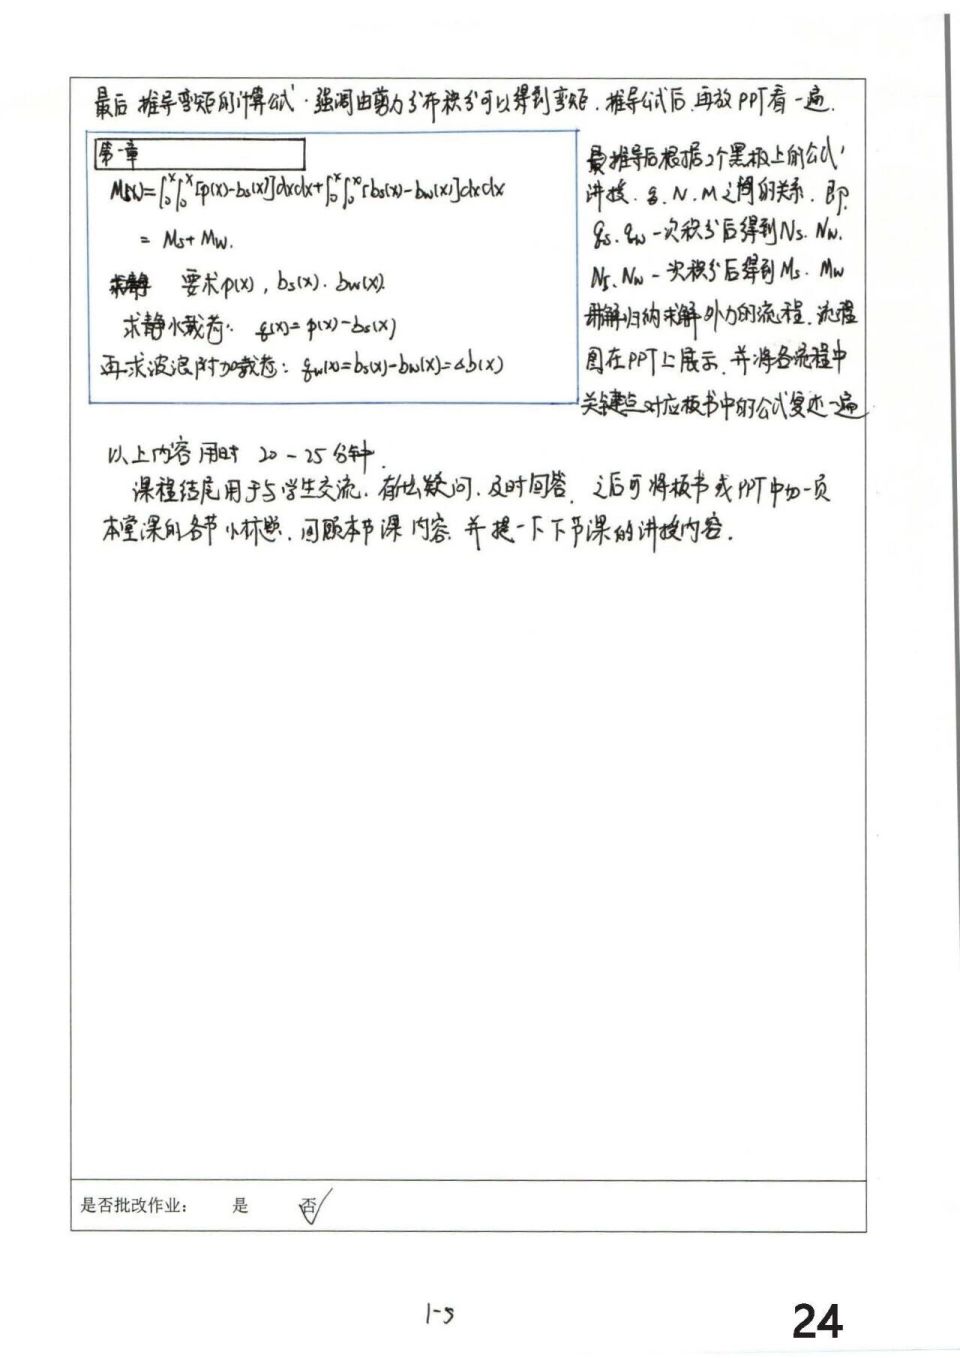 最后 推导弯矩的计算公式，强调由剪力分布积分可以得到弯矩，推导公式后，再放PPT看一遍.
第一章
M(x)=∫₀ˣ∫₀ˣ[p(x)-bs(x)]dxdx+∫₀ˣ∫₀ˣ[bs(x)-bw(x)]dxdx
= Ms+Mw.
要求p(x), bs(x). bw(x).
求静水载荷: q(x)=p(x)-bs(x)
再求波浪附加载荷: qw(x)=bs(x)-bw(x)=Δb(x)
推导后根据2个黑板上的公式，
讲授. q、N、M之间的关系. 即
qs、qw一次积分后得到Ns、Nw.
Ns、Nw一次积分后得到Ms、Mw
归纳求解外力的流程. 流程
图在PPT上展示. 并将各流程中
关键点对应板书中的公式复述一遍
以上内容用时 20-25分钟.
课程结尾用于与学生交流. 有什么疑问. 及时回答. 之后可将板书或PPT中加一页
本堂课的各节小标题. 回顾本节课内容. 并提一下下节课的讲授内容.
是否批改作业： 是 否
1-5
24